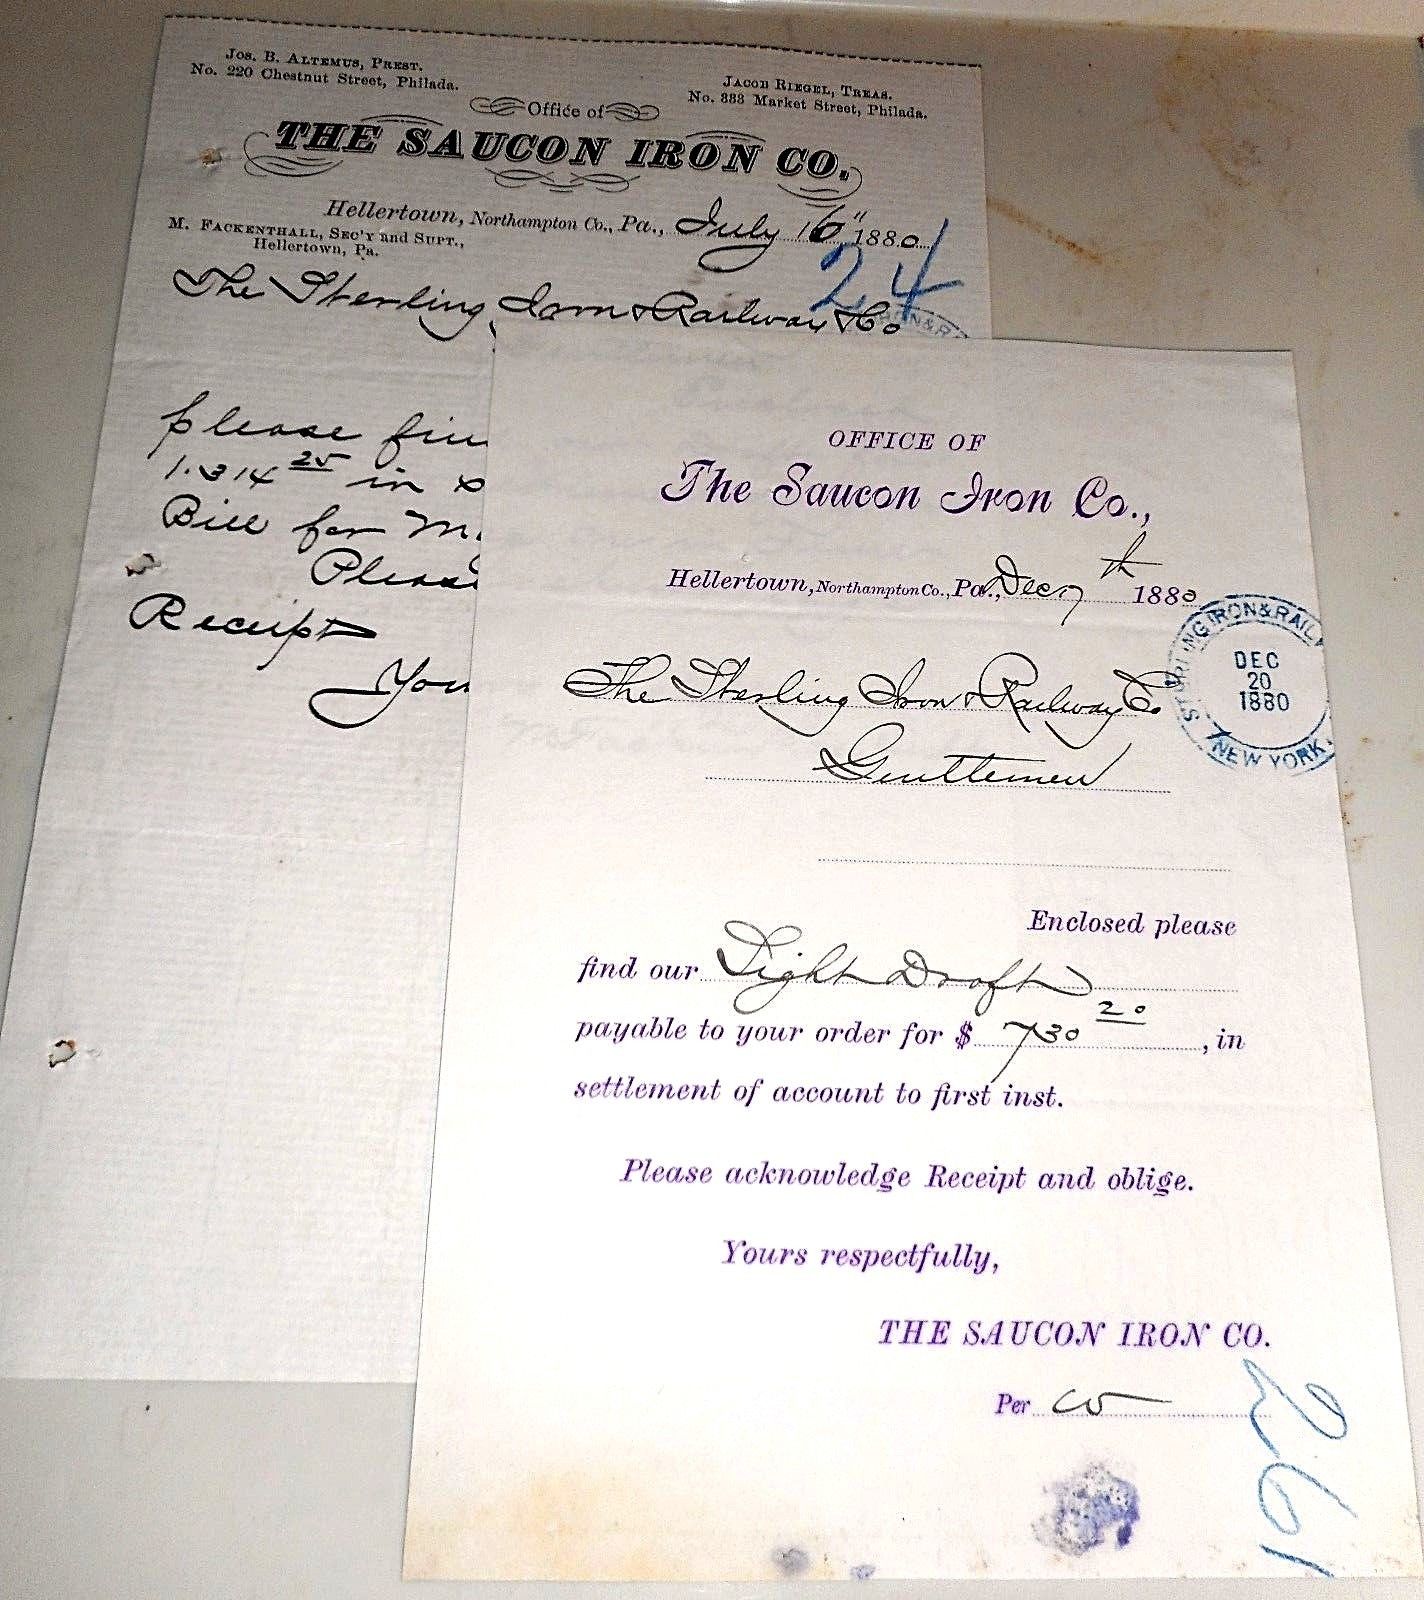 Jos. B. Altemus, Prest.
No. 220 Chestnut Street, Philada.
Jacob Riegel, Treas.
No. 333 Market Street, Philada.
Office of
THE SAUCON IRON CO.
Hellertown, Northampton Co., Pa., July 16" 1880
M. Fackenthall, Sec'y and Supt.,
Hellertown, Pa.
24
The Sterling Iron & Railway Co
IRON & R
please fin
1.314 25 in
Bill for
Pleas
Receipt
You
OFFICE OF
The Saucon Iron Co.,
Hellertown, Northampton Co., Pa., Dec 17th 1880
STERLING IRON & RAIL
DEC
20
1880
NEW YORK.
The Sterling Iron & Railway Co
Gentlemen
Enclosed please
find our Sight Draft
payable to your order for $ 730 20, in
settlement of account to first inst.
Please acknowledge Receipt and oblige.
Yours respectfully,
THE SAUCON IRON CO.
Per
261